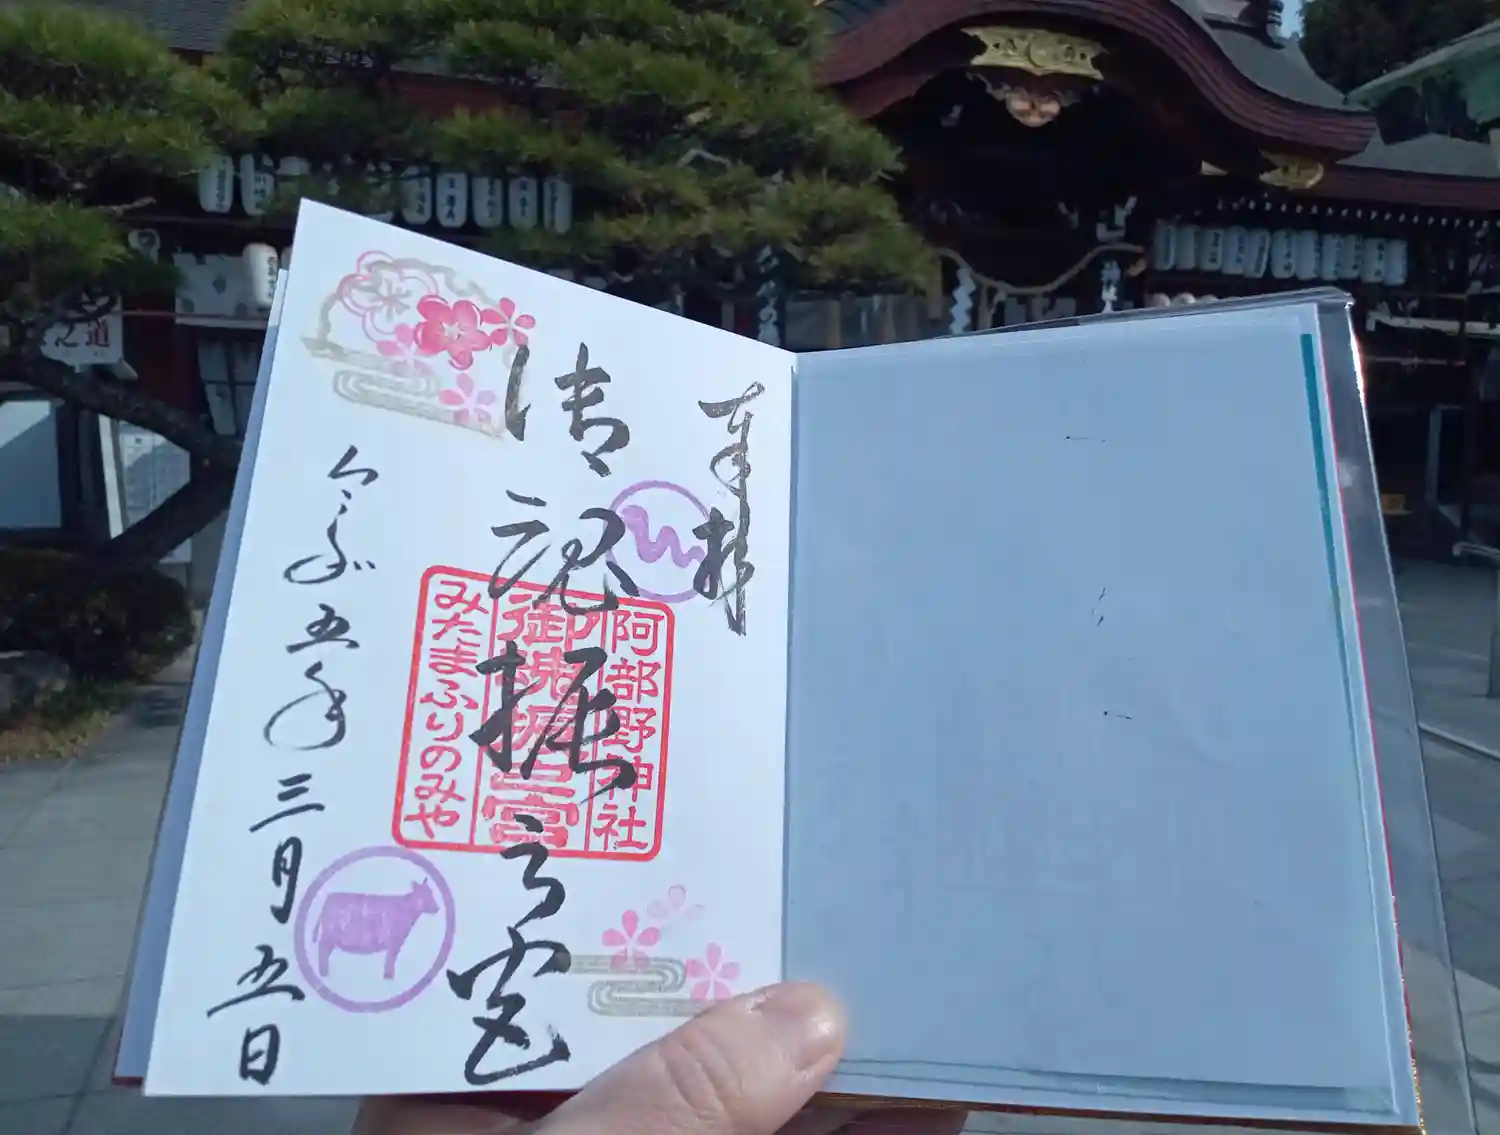 奉拝
御魂振之宮
令和五年三月五日
阿部野神社
御魂振之宮
みたまふりのみや
之道